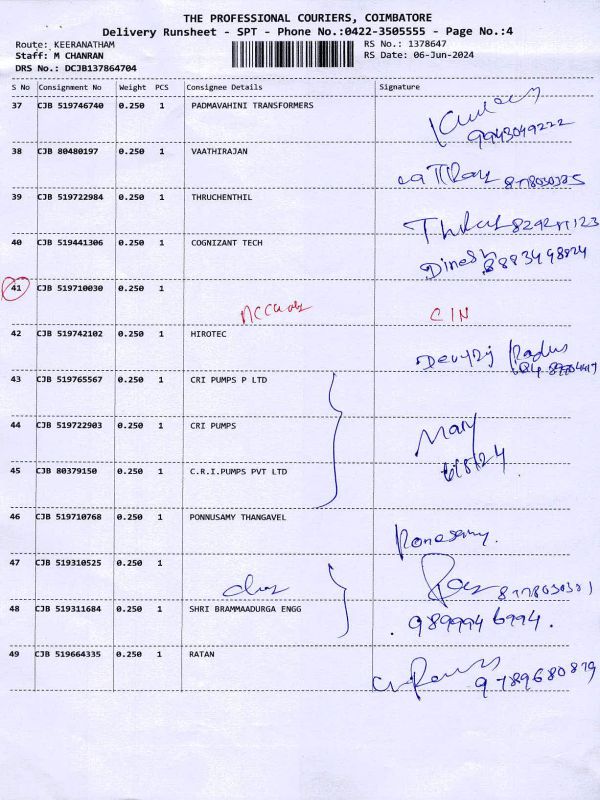 THE PROFESSIONAL COURIERS, COIMBATORE
Delivery Runsheet - SPT - Phone No.:0422-3505555 - Page No.:4
Route: KEERANATHAM
RS No.: 1378647
Staff: M CHANRAN
RS Date: 06-Jun-2024
DRS No.: DCJB137864704
S No Consignment No Weight PCS Consignee Details Signature
37 CJB 519746740 0.250 1 PADMAVAHINI TRANSFORMERS
9943049222
38 CJB 80480197 0.250 1 VAATHIRAJAN
39 CJB 519722984 0.250 1 THRUCHENTHIL
40 CJB 519441306 0.250 1 COGNIZANT TECH
Dinesh 8883498824
41 CJB 519710030 0.250 1
CIN
42 CJB 519742102 0.250 1 HIROTEC
43 CJB 519765567 0.250 1 CRI PUMPS P LTD
44 CJB 519722903 0.250 1 CRI PUMPS
Mary
45 CJB 80379150 0.250 1 C.R.I.PUMPS PVT LTD
46 CJB 519710768 0.250 1 PONNUSAMY THANGAVEL
Ponesamy.
47 CJB 519310525 0.250 1
48 CJB 519311684 0.250 1 SHRI BRAMMAADURGA ENGG
9899946994.
49 CJB 519664335 0.250 1 RATAN
9789680879